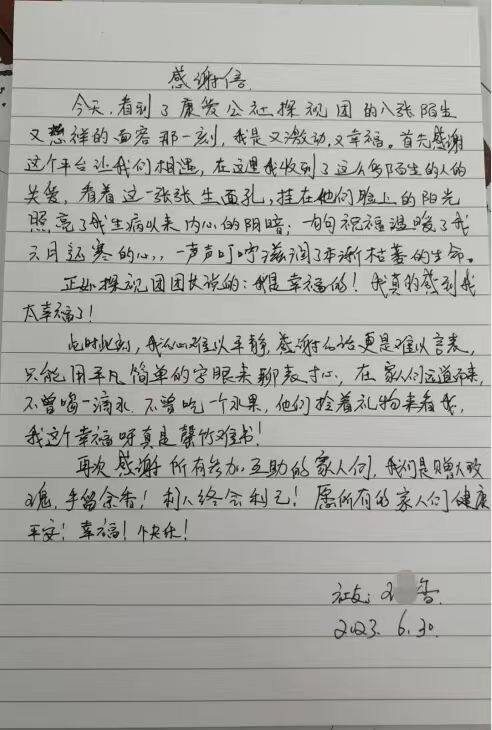 感谢信
今天,看到了康爱公社探视团的八张陌生
又慈祥的面容那一刻,我是又激动,又幸福。首先感谢
这个平台让我们相遇,在这里我收到了这么多陌生的人的
关爱,看着这一张张生面孔,挂在他们脸上的阳光
照亮了我生病以来内心的阴暗;句句祝福温暖了我
六月寒的心,,一声声叮咛滋润了本渐枯萎的生命。
正如探视团团长说的:我是幸福的!我真的感到我
太幸福了!
此时此刻,我的心难以平静,感谢的话更是难以言表,
只能用平凡简单的字眼来聊表寸心,在家人们远道而来,
不曾喝一滴水,不曾吃一个水果,他们拎着礼物来看我,
我这个幸福呀真是罄竹难书!
再次感谢所有参加互助的家人们,我们是赠人玫
瑰,手留余香!利人终会利己!愿所有的家人们健康
平安!幸福!快乐!
社友:香
2023.6.30.